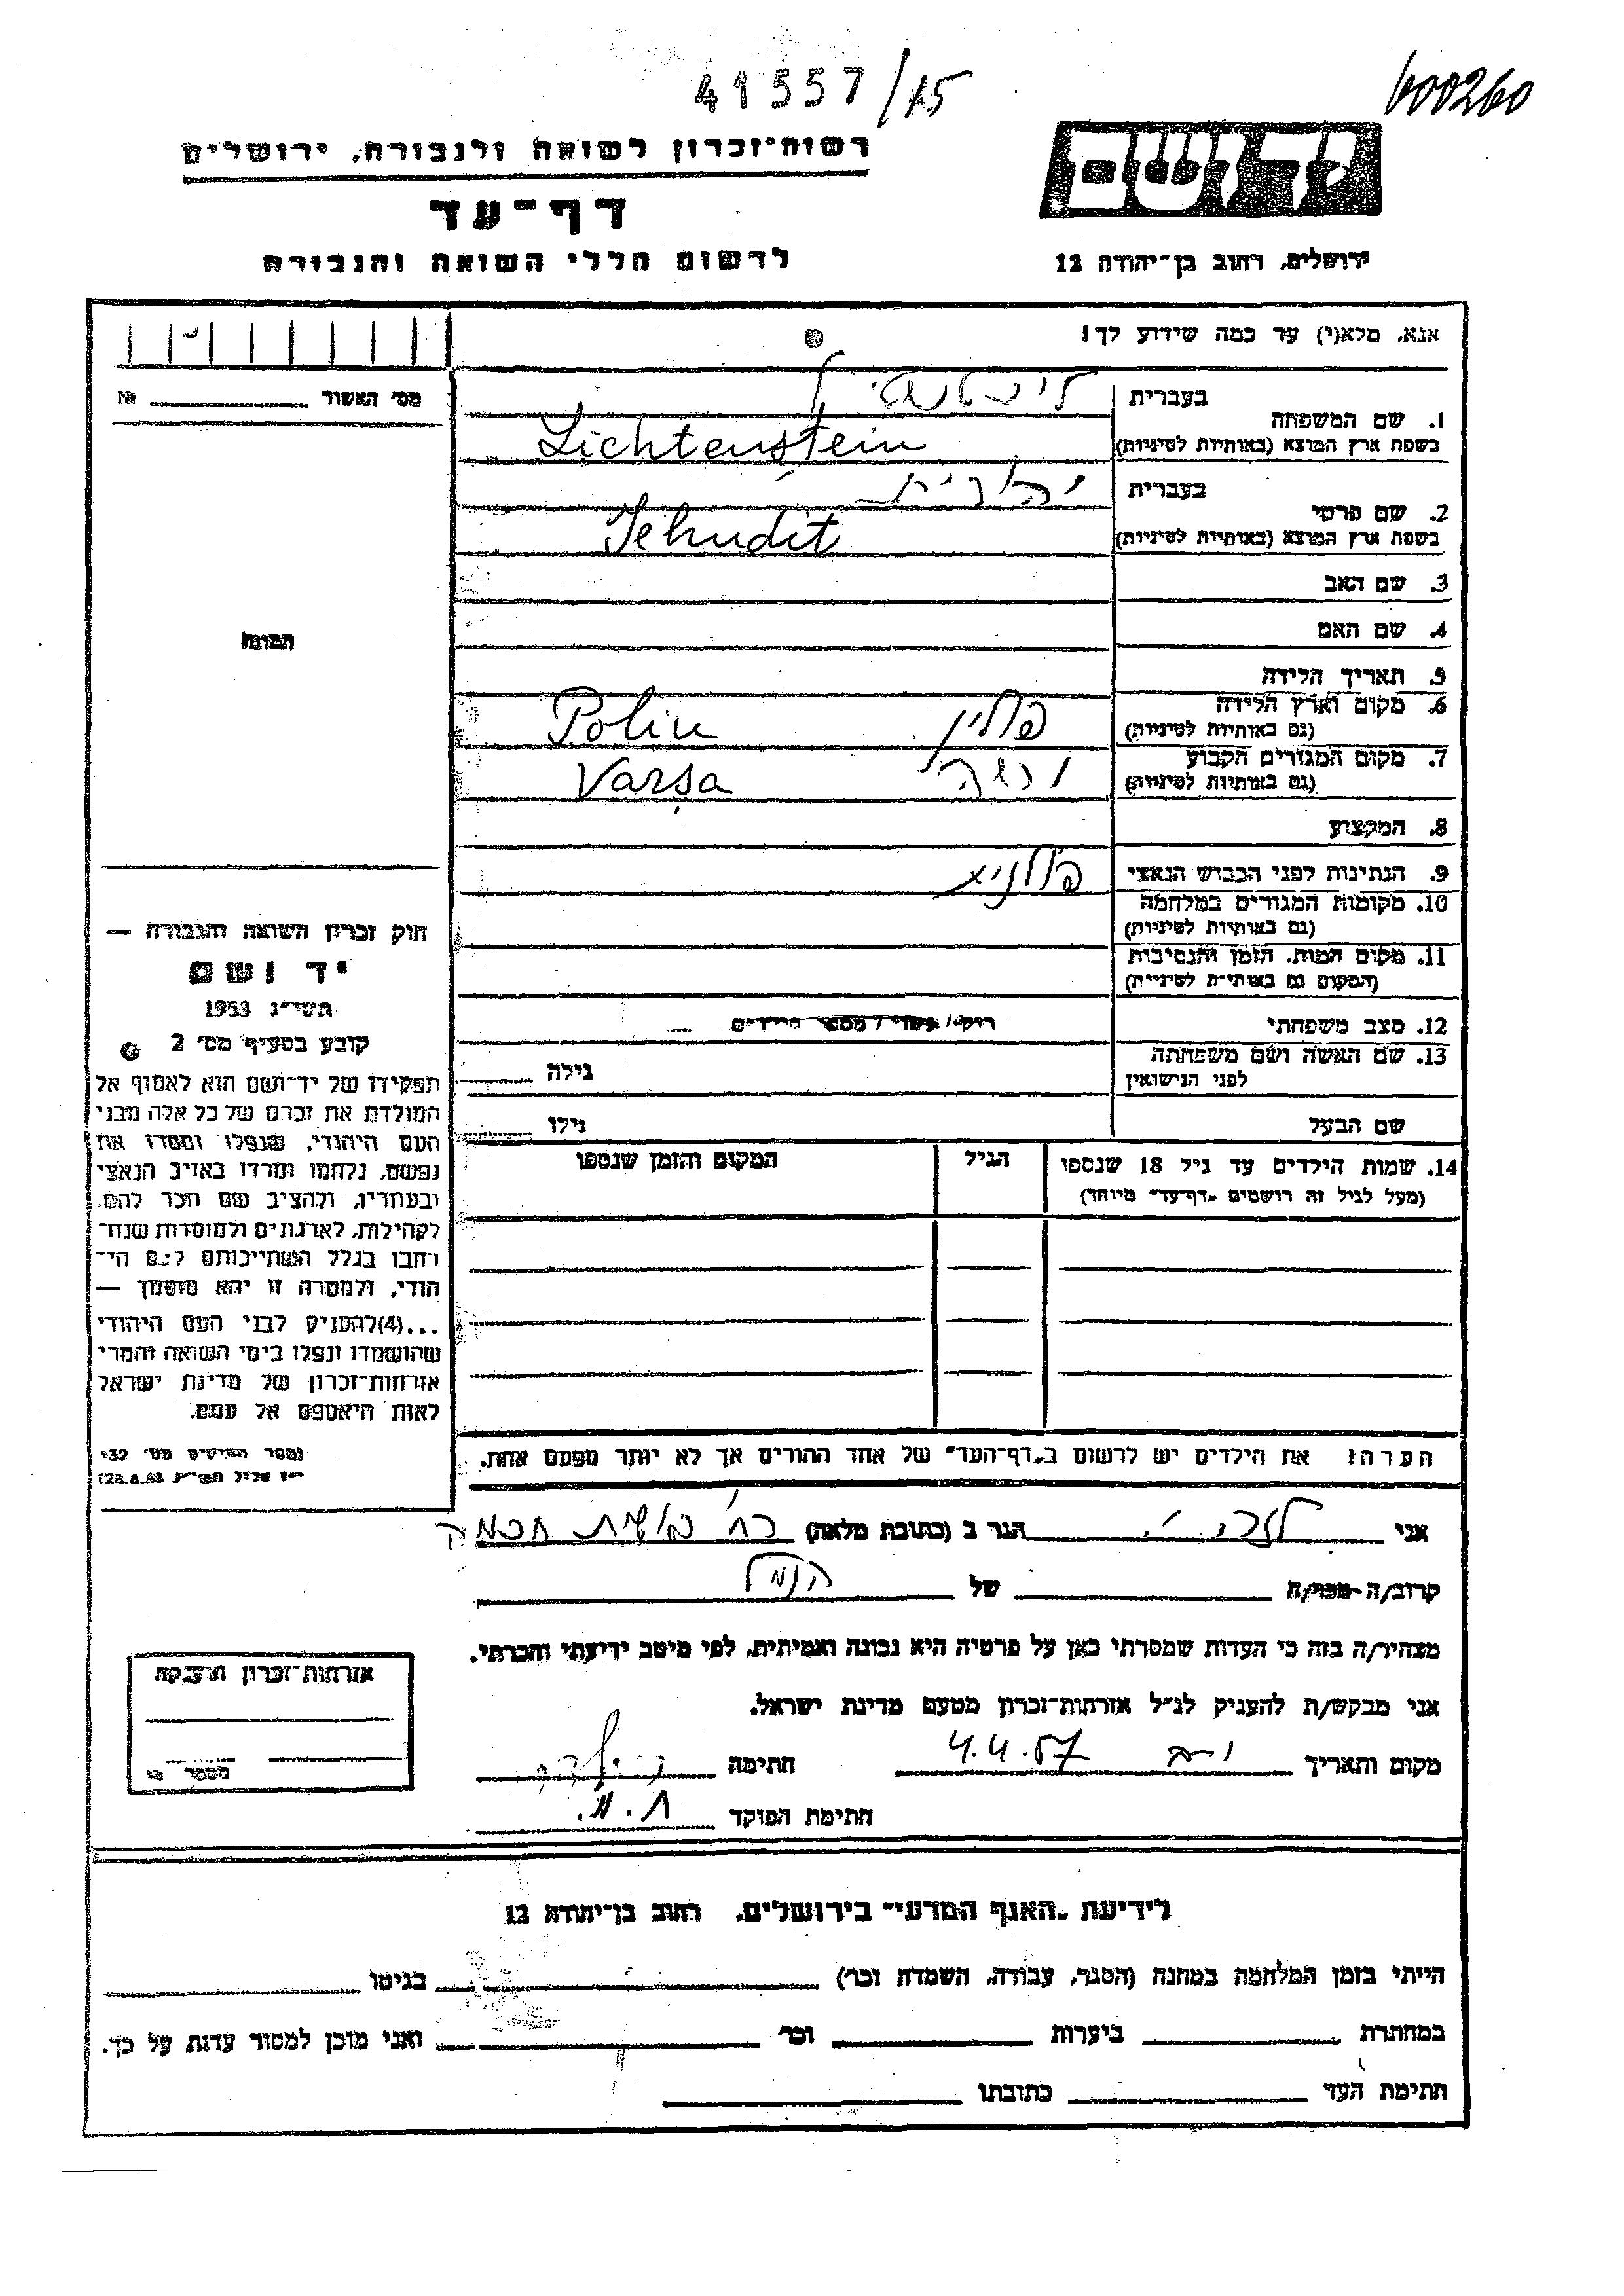 41557/15
600260
רשות-זכרון לשואה ולגבורה, ירושלים
יד ושם
דף-עד
לרשום חללי השואה והגבורה
ירושלים, רחוב בן-יהודה 12
אנא, מלא(י) עד כמה שידוע לך!
מס׳ האשור № 
1. שם המשפחה
בעברית
בשפת ארץ המוצא (באותיות לטיניות)
Lichtenstein
2. שם פרטי
בעברית יהודית
בשפת ארץ המוצא (באותיות לטיניות)
Jehudit
3. שם האב
4. שם האם
תמונה
5. תאריך הלידה
6. מקום וארץ הלידה
(גם באותיות לטיניות)
פולין Polin
7. מקום המגורים הקבוע
(גם באותיות לטיניות)
ורשה Varsa
8. המקצוע
9. הנתינות לפני הכבוש הנאצי
10. מקומות המגורים במלחמה
(גם באותיות לטיניות)
11. מקום המות, הזמן והנסיבות
(המקום גם באותיות לטיניות)
12. מצב משפחתי
רוק/ נשוי / מספר הילדים
13. שם האשה ושם משפחתה
לפני הנישואין
גילה
שם הבעל
גילו
14. שמות הילדים עד גיל 18 שנספו
(מעל לגיל זה רושמים „דף-עד" מיוחד)
הגיל
המקום והזמן שנספו
חוק זכרון השואה והגבורה —
יד ושם
תשי״ג 1953
קובע בסעיף מס׳ 2
תפקידו של יד-ושם הוא לאסוף אל
המולדת את זכרם של כל אלה מבני
העם היהודי, שנפלו ומסרו את
נפשם, נלחמו ומרדו באויב הנאצי
ובעוזריו, ולהציב שם וזכר להם,
לקהילות, לארגונים ולמוסדות שנח-
רבו בגלל השתייכותם לעם הי-
הודי, ולמטרה זו יהא מוסמך —
...(4)להעניק לבני העם היהודי
שהושמדו ונפלו בימי השואה והמרי
אזרחות-זכרון של מדינת ישראל
לאות היאספם אל עמם.
(ספר החוקים מס׳ 132
הערה: את הילדים יש לרשום ב„דף-העד" של אחד ההורים אך לא יותר מפעם אחת.
אני
הגר ב (כתובת מלאה)
קרוב/ה-מכר/ה של
מצהיר/ה בזה כי העדות שמסרתי כאן על פרטיה היא נכונה ואמיתית, לפי מיטב ידיעתי והכרתי.
אני מבקש/ת להעניק לנ״ל אזרחות-זכרון מטעם מדינת ישראל.
מקום ותאריך 4.4.57 חתימה
חתימת הפוקד
אזרחות-זכרון הוענקה
מספר
לידיעת „האגף המדעי" בירושלים, רחוב בן-יהודה 12
הייתי בזמן המלחמה במחנה (הסגר, עבודה, השמדה וכו׳) בגיטו
במחתרת ביערות וכו׳ ואני מוכן למסור עדות על כך.
חתימת העד כתובתו